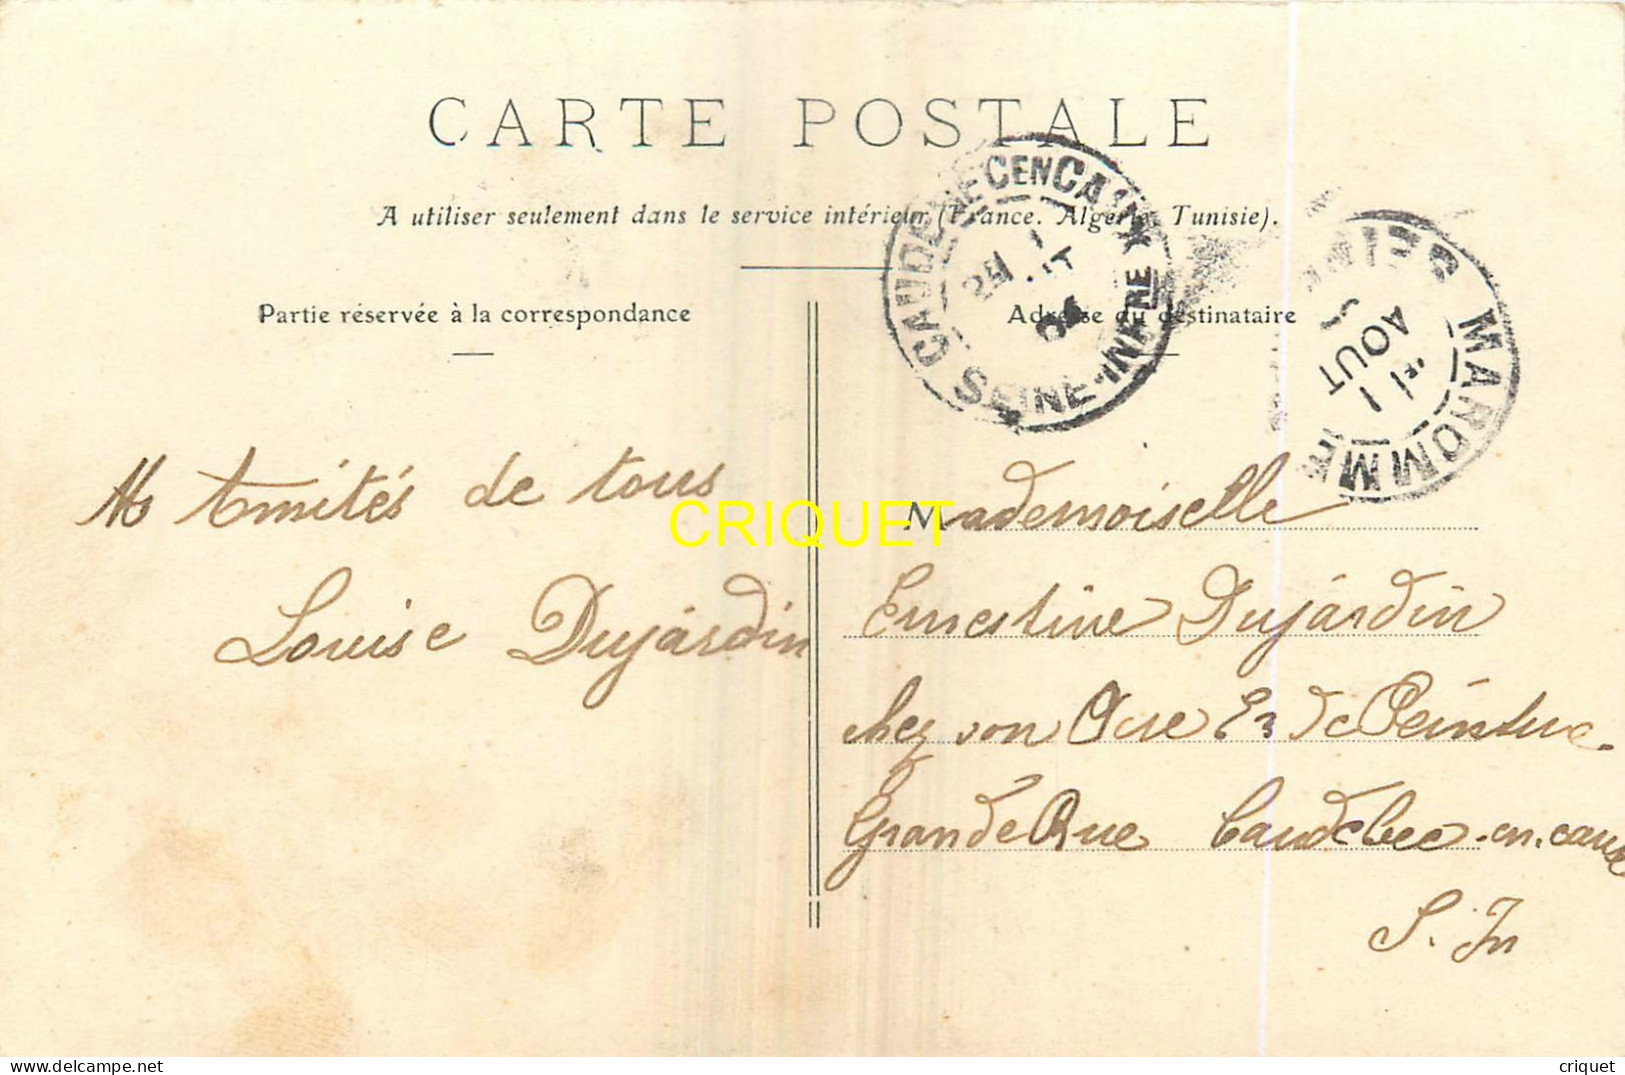 CARTE POSTALE
A utiliser seulement dans le service intérieur (France, Algerie, Tunisie).
Partie réservée à la correspondance
Adresse du destinataire
CAUDEBEC EN CAUX
SEINE-INFRE
MAROMME
1
AOUT
Amitiés de tous
Louise Dujardin
CRIQUET
Mademoiselle
Ernestine Dujárdin
chez son Père En de Peinture
Grande Rue Caudebec-en-caux
S. In
delcampe.net
criquet